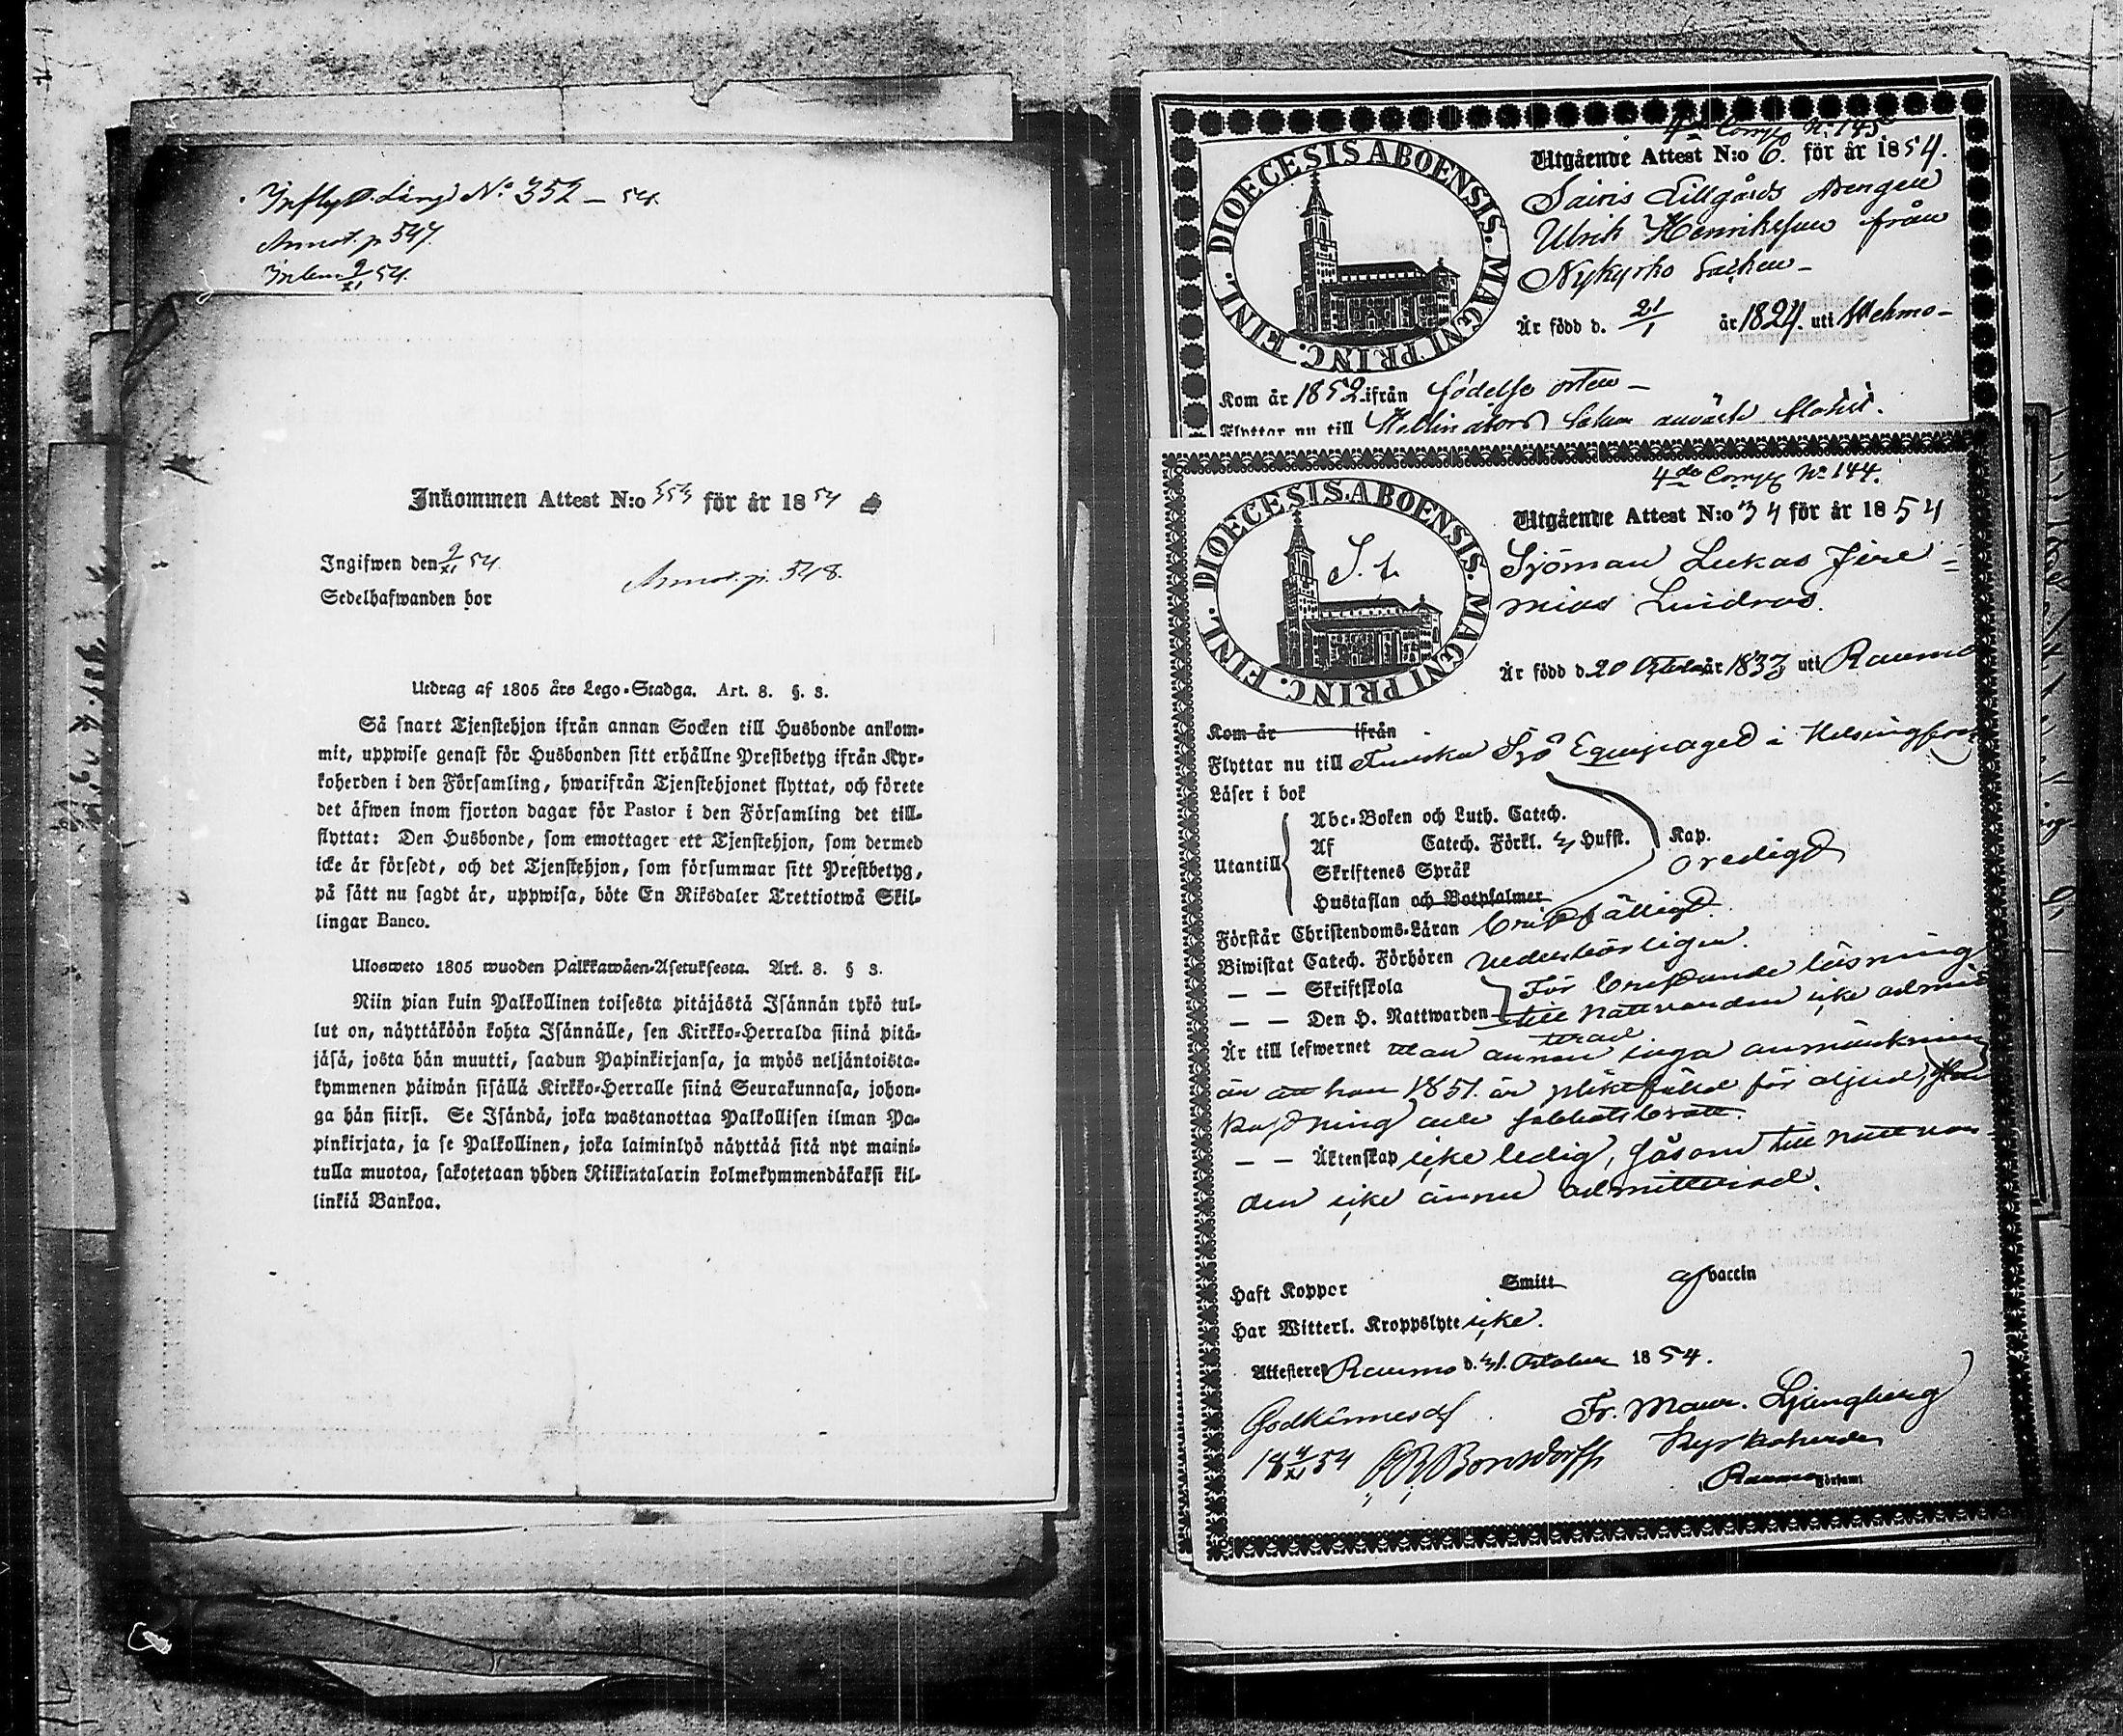 Inflyttn. Längd No 352 – 54.
Annot. p 547.
Inlem. 9/XI 54.
Inkommen Attest N:o 353 för år 1854
Ingifwen den 9/XI 54.
Annot. p. 548.
Sedelhafwanden bor
Utdrag af 1805 års Lego-Stadga. Art. 8. §. 3.
Så snart Tjenstehjon ifrån annan Socken till Husbonde ankom-
mit, uppwise genast för Husbonden sitt erhållne Prestbetyg ifrån Kyr-
koherden i den Församling, hwarifrån Tjenstehjonet flyttat, och förete
det äfwen inom fjorton dagar för Pastor i den Församling det till-
flyttat: Den Husbonde, som emottager ett Tjenstehjon, som dermed
icke är försedt, och det Tjenstehjon, som försummar sitt Prestbetyg,
på sätt nu sagdt är, uppwisa, böte En Riksdaler Trettiotwå Skil-
lingar Banco.
Ulosweto 1805 wuoden Palkkawäen-Asetuksesta. Art. 8. § 3.
Niin pian kuin Palkollinen toisesta pitäjästä Isännän tykö tul-
lut on, näyttäköön kohta Isännälle, sen Kirkko-Herralda siinä pitä-
jäsä, josta hän muutti, saadun Papinkirjansa, ja myös neljäntoista-
kymmenen päiwän sisällä Kirkko-Herralle siinä Seurakunnasa, johon-
ga hän siirsi. Se Isändä, joka wastanottaa Palkollisen ilman Pa-
pinkirjata, ja se Palkollinen, joka laiminlyö näyttää sitä nyt maini-
tulla muotoa, sakotetaan yhden Riikintalarin kolmekymmendäkaksi kil-
linkiä Bankoa.
4de Comp. No 145
DIOECESIS ABOENSIS. MAGNI PRINC. FINL.
Utgående Attest N:o 6. för år 1854.
Sairis Lillgårds drengen
Ulrik Henriksson från
Nykyrko Socken –
Är född d. 21/1 år 1824. uti Wehmo –
Kom år 1852 ifrån födelse orten –
Flyttar nu till
4de Comp. No 144.
DIOECESIS ABOENSIS. MAGNI PRINC. FINL.
S. f.
Utgående Attest N:o 34 för år 1854
Sjöman Lukas Jere-
mias Lindroos.
Är född d. 20 October år 1833 uti Raumo
Kom år ifrån
Flyttar nu till Finska Sjö Equipaget i Helsingfors
Läser i bok
Utantill
Abc-Boken och Luth. Catech.
Af Catech. Förkl. 3 Hufst. Kap.
Skriftenes Språk oredigt
Hustaflan och Botpsalmer
Förstår Christendoms-Läran bristfälligt.
Biwistat Catech. Förhören vederbörligen.
— — Skriftskola För bristande läsning
— — Den H. Nattwarden till nattvarden icke admit
terad
Är till lefwernet utan annan inga anmärkning
än att han 1851 är pliktfälld för oljud,
kastning och sabbatsbrott.
— — Äktenskap icke ledig, såsom till nattvar
den icke ännu admitterad.
Haft Koppor Smitt af vaccin
Har Witterl. Kroppslyte icke.
Attesterer Raumo d. 31. October 1854.
Godkännes af Fr. Maur. Ljungberg
18 4/XI 54 Bonsdorff Kyrkoherde
Raumo Församl